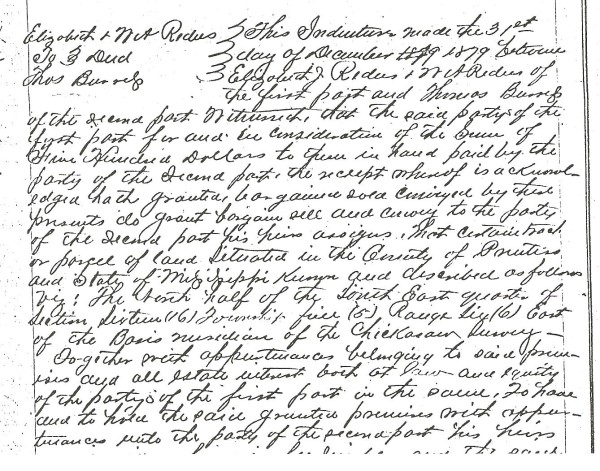 Elizabeth & W A Redus } This Indenture made the 31st
To } Deed } day of December 1879 1879 between
Thos Burress } Elizabeth J Redus & W A Redus of
the first part and Thomas Burress
of the Second part Witnesseth, that the said partys of the
first part for and in consideration of the Sum of
Five Hundred Dollars to them in hand paid by the
party of the Second part, the receipt whereof is acknowl
edged hath granted, bargained sold conveyed by these
presents do grant bargain sell and convey to the party
of the Second part his heirs assigns, that certain tract
or parcel of land situated in the County of Prentiss
and State of Mississippi Known and described as follows
viz: The North half of the South East quarter of
Section Sixteen (16) Township five (5), Range Six (6) East
of the Basis meridian of the Chickasaw Survey—
Together with appurtenances belonging to said prem-
ises and all estate interest both at law and equity
of the partys of the first part in the same. To have
and to hold the said granted premises with appur-
tenances unto the party of the second part his heirs
and the